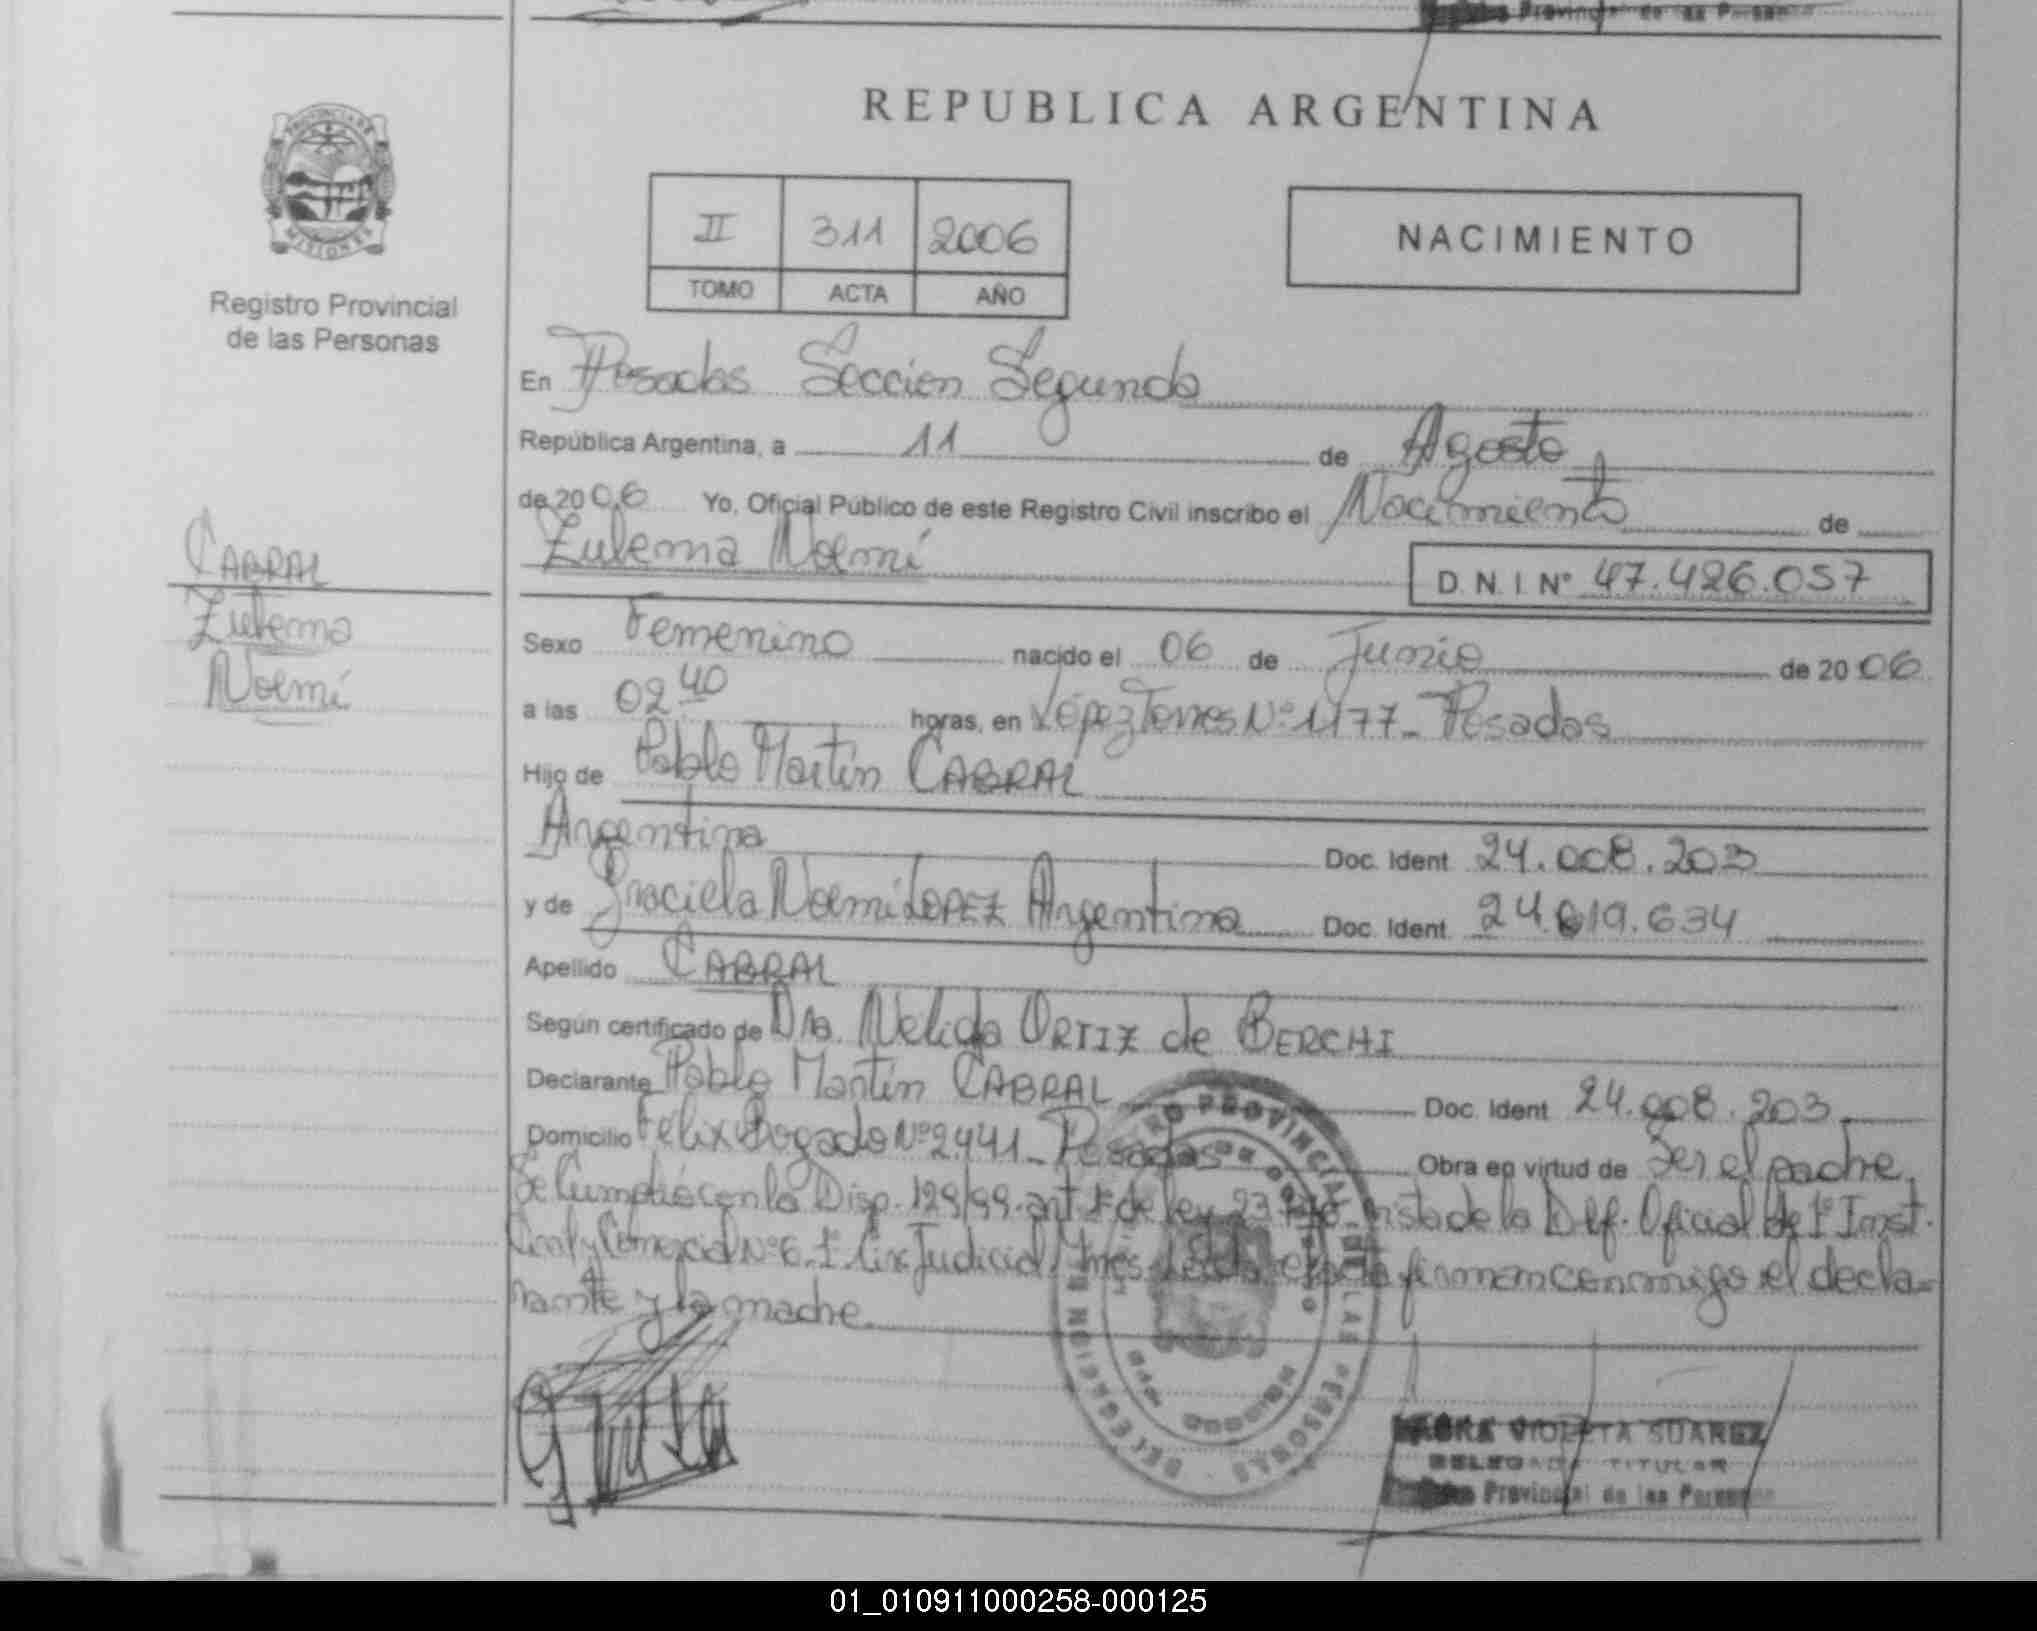 Provincial de las Personas
PROVINCIA DE
MISIONES
Registro Provincial
de las Personas
REPUBLICA ARGENTINA
II 311 2006
TOMO ACTA AÑO
NACIMIENTO
En Posadas Sección Segunda
República Argentina, a 11 de Agosto
de 2006 Yo, Oficial Público de este Registro Civil inscribo el Nacimiento de
Zulema Noemí
D. N. I. N° 47.426.057
CABRAL
Zulema
Noemí
Sexo Femenino nacido el 06 de Junio de 2006
a las 02 40 horas, en López Torres Nº 1177_ Posadas
Hijo de Pablo Martín CABRAL
Argentina Doc. Ident 24.008.203
y de Graciela Noemí LOPEZ Argentina Doc. Ident. 24.619.634
Apellido CABRAL
Según certificado de Dra. Nelida ORTIZ de BERCHI
Declarante Pablo Martín CABRAL Doc. Ident 24.008.203
Domicilio Felix Bogado Nº 2441_ Posadas Obra en virtud de Ser el padre.
Se Cumplió con la Disp. 129/99. art. 1º de ley vista de la Def. Oficial de 1º Inst.
Civil y Comercial Nº 6. 1º Cir. Judicial Mnes. Leida el acta firman conmigo el decla-
rante y la madre.
REGISTRO PROVINCIAL DE LAS PERSONAS
DELEGACION
VIOLETA SUAREZ
DELEGADA TITULAR
Provincial de las Personas
01_010911000258-000125